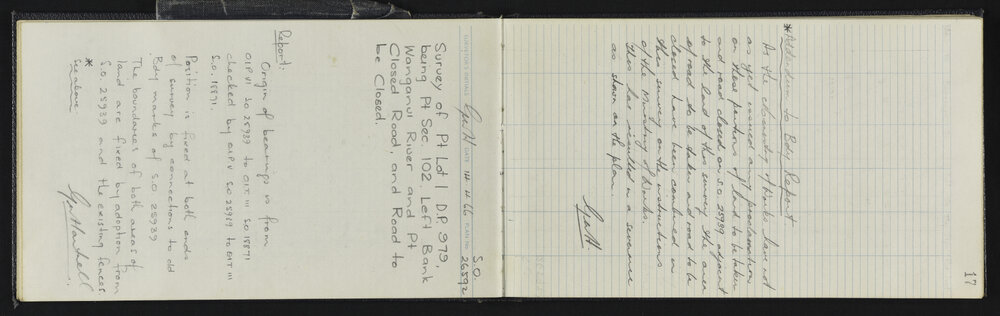 17
*Addendum to Bdy Report
As the Ministry of Works have not
as yet issued any proclamation
on those portions of land to be taken
and road closed on S.O. 25939 adjacent
to the land of this survey the area
of road to be taken and road to be
closed have been combined in
this survey on the instructions
of the Ministry of Works.
This has resulted in a severance
as shown on the plan.
GWH
SURVEYOR'S INITIALS GWH DATE 14 4 66 PLAN NO S.O. 26592
Survey of Pt Lot 1 D.P. 979,
being Pt Sec. 102 Left Bank
Wanganui River and Pt
Closed Road, and Road to
be Closed.
Report:
Origin of bearings is from
OIP VI SO 25939 to OIT III SO 18871
checked by OIP V SO 25939 to OIT III
S.O. 18871.
Position is fixed at both ends
of survey by connections to old
Bdy marks of S.O 25939
The boundaries of both areas of
land are fixed by adoption from
S.O. 25939 and the existing fences
* see above